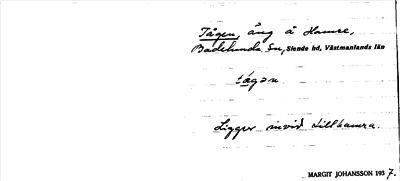 Tågen, äng å Hamre,
Badelunda sn, Siende hd, Västmanlands län
tågən
Ligger invid Lillhamra.
MARGIT JOHANSSON 1937.